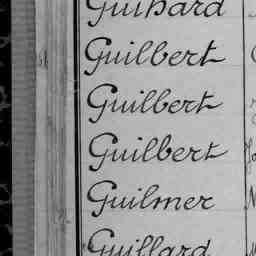 Guihard
Guilbert
Guilbert
Guilbert
Guilmer
Guillard